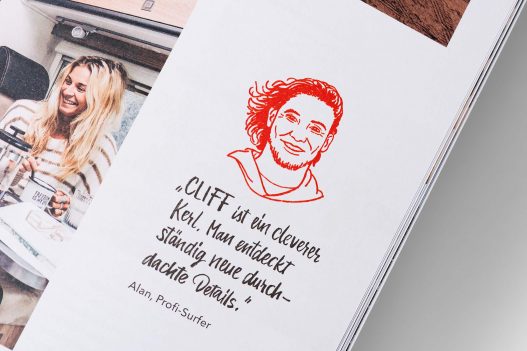 „CLIFF ist ein cleverer
Kerl. Man entdeckt
ständig neue durch-
dachte Details.“
Alan, Profi-Surfer